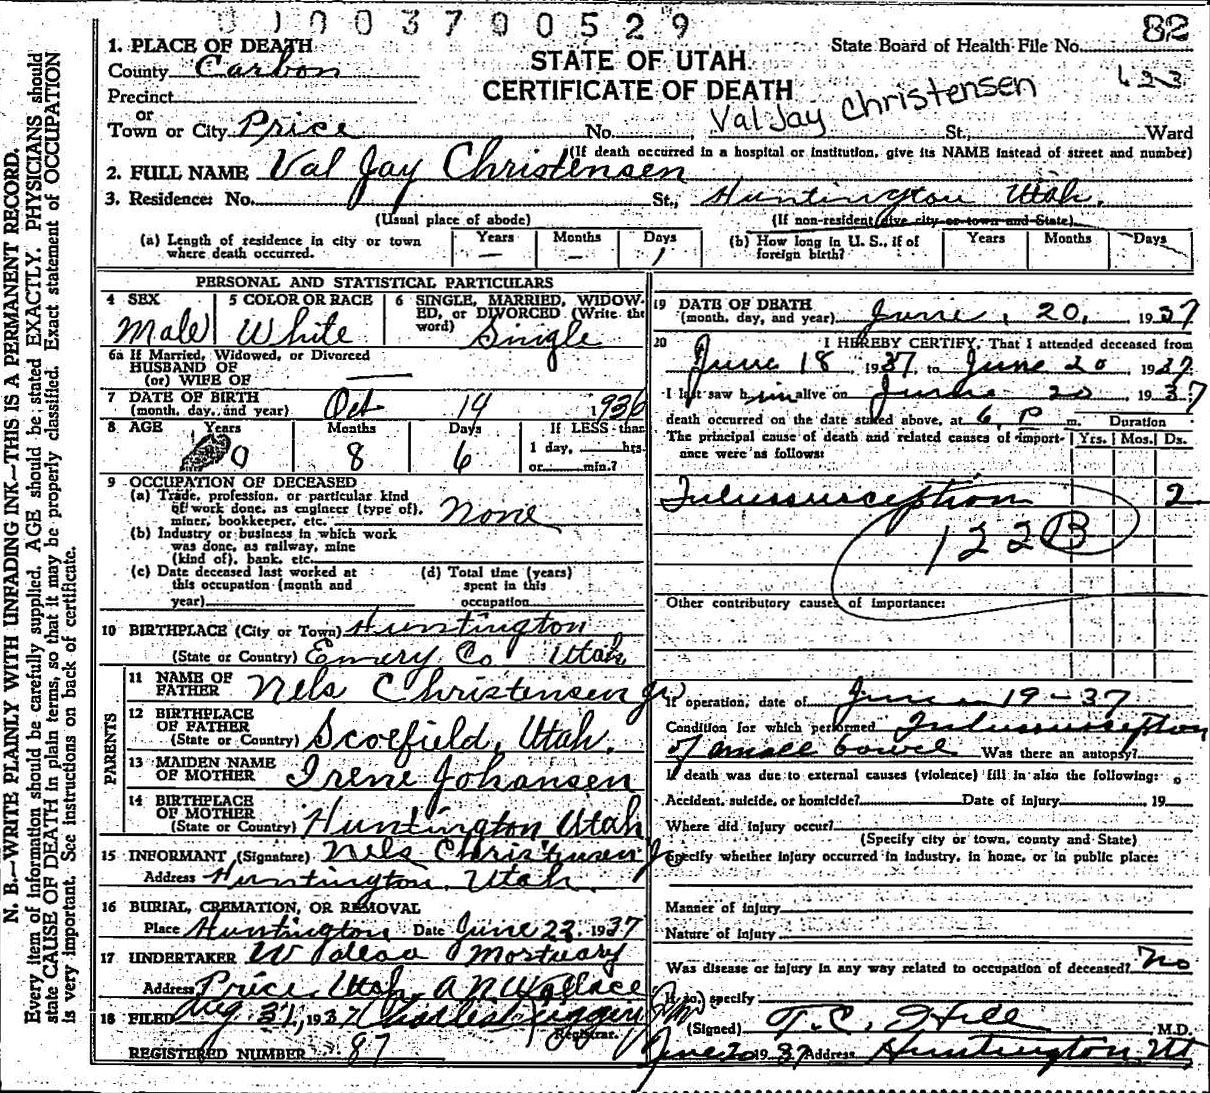 0 0 0 3 7 0 0 5 2 9
82
1. PLACE OF DEATH
State Board of Health File No.
County Carbon
STATE OF UTAH
CERTIFICATE OF DEATH
Precinct
or
Town or City Price No. Val Jay Christensen St., Ward
(If death occurred in a hospital or institution, give its NAME instead of street and number)
2. FULL NAME Val Jay Christensen
3. Residence: No. St., Huntington Utah.
(Usual place of abode) (If non-resident give city or town and State)
(a) Length of residence in city or town where death occurred. Years — Months — Days 1
(b) How long in U. S., if of foreign birth? Years Months Days
PERSONAL AND STATISTICAL PARTICULARS
4 SEX Male
5 COLOR OR RACE White
6 SINGLE, MARRIED, WIDOWED, or DIVORCED (Write the word) Single
6a If Married, Widowed, or Divorced
HUSBAND OF
(or) WIFE OF
7 DATE OF BIRTH
(month, day, and year) Oct 14 1936
8 AGE Years 0 Months 8 Days 6 If LESS than 1 day, hrs. or min.?
9 OCCUPATION OF DECEASED
(a) Trade, profession, or particular kind of work done, as engineer (type of), miner, bookkeeper, etc. None
(b) Industry or business in which work was done, as railway, mine (kind of), bank, etc.
(c) Date deceased last worked at this occupation (month and year)
(d) Total time (years) spent in this occupation
10 BIRTHPLACE (City or Town) Huntington
(State or Country) Emery Co Utah
PARENTS
11 NAME OF FATHER Nels Christensen Jr
12 BIRTHPLACE OF FATHER
(State or Country) Scoefield, Utah.
13 MAIDEN NAME OF MOTHER Irene Johansen
14 BIRTHPLACE OF MOTHER
(State or Country) Huntington Utah
15 INFORMANT (Signature) Nels Christensen Jr
Address Huntington, Utah.
16 BURIAL, CREMATION, OR REMOVAL
Place Huntington Date June 22. 1937
17 UNDERTAKER Wallace Mortuary
Address Price, Utah, A N Wallace
18 FILED Aug 31, 1937
Registrar.
REGISTERED NUMBER 87
19 DATE OF DEATH
(month, day, and year) June, 20, 1937
20 I HEREBY CERTIFY, That I attended deceased from
June 18 1937, to June 20 1937
I last saw him alive on June 20 1937
death occurred on the date stated above, at 6 P m.
The principal cause of death and related causes of importance were as follows: Duration Yrs. Mos. Ds.
Intussusception 2
122B
Other contributory causes of importance:
If operation, date of June 19-37
Condition for which performed Intussusception
of small bowel Was there an autopsy?
If death was due to external causes (violence) fill in also the following:
Accident, suicide, or homicide? Date of injury 19
Where did injury occur?
(Specify city or town, county and State)
Specify whether injury occurred in industry, in home, or in public place:
Manner of injury
Nature of injury
Was disease or injury in any way related to occupation of deceased? No
If so, specify
(Signed) T. C. Hill M.D.
June 20 1937 Address Huntington, Ut
N. B.—WRITE PLAINLY WITH UNFADING INK—THIS IS A PERMANENT RECORD.
Every item of information should be carefully supplied. AGE should be stated EXACTLY. PHYSICIANS should
state CAUSE OF DEATH in plain terms, so that it may be properly classified. Exact statement of OCCUPATION
is very important. See instructions on back of certificate.